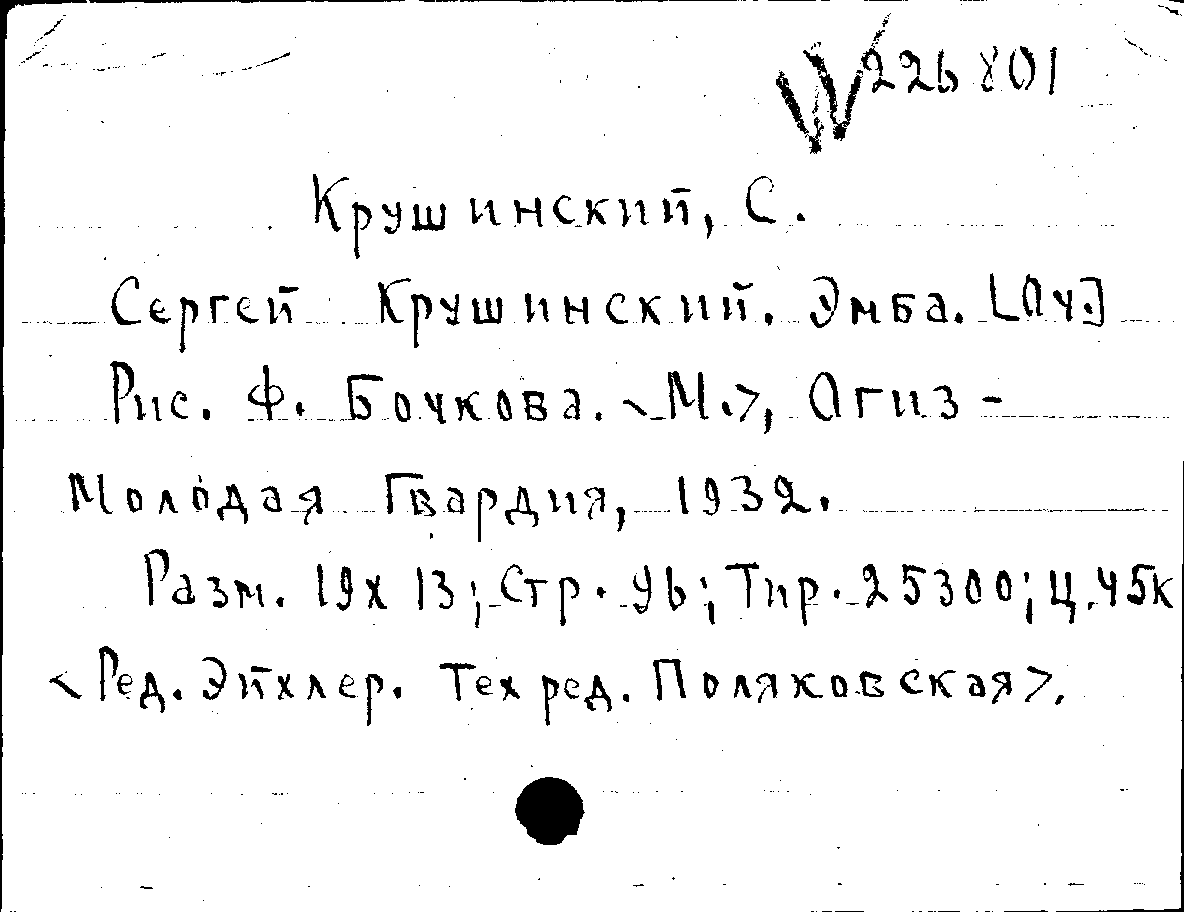 W 226801
Крушинский, С.
Сергей Крушинский. Эмба. [Оч.]
Рис. Ф. Бочкова. <М.>, Огиз -
Молодая Гвардия, 1932.
Разм. 19х13; Стр. 96; Тир. 25300; Ц. 45к
<Ред. Эйхлер. Тех ред. Поляковская>.